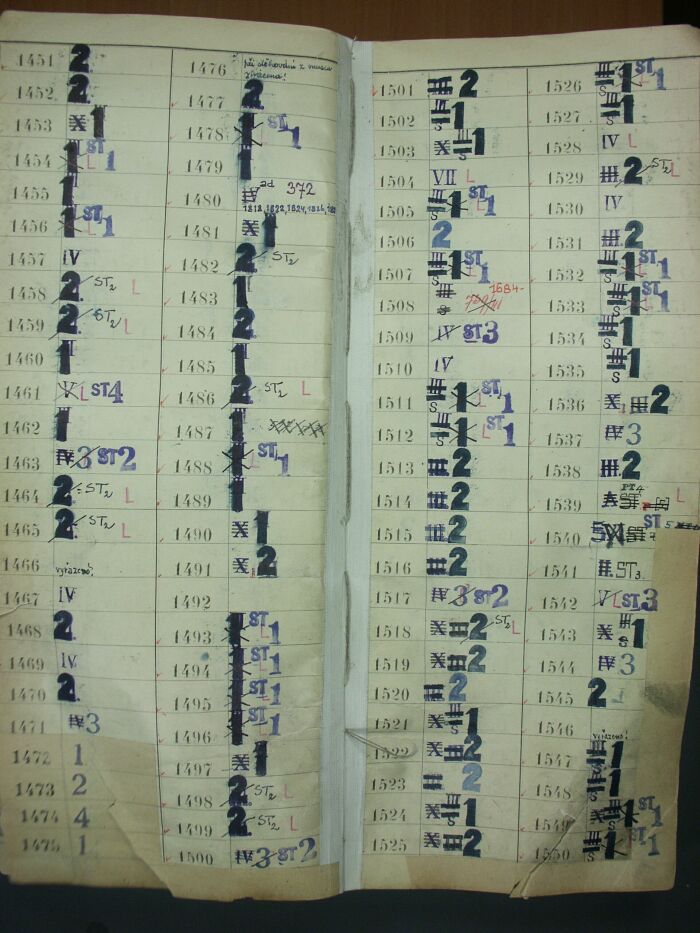 1451 2
1452 2
1453 X 1
1454 1 ST L 1
1455 1
1456 1 ST L 1
1457 IV
1458 2 ST2 L
1459 2 ST2 L
1460 1
1461 V L ST4
1462 1
1463 IV 3 ST2
1464 2 ST2 L
1465 2 ST2 L
1466 vyřazeno!
1467 IV
1468 2
1469 IV
1470 2
1471 IV 3
1472 1
1473 2
1474 4
1475 1
1476 při stěhování z musea
ztracena!
1477 2
1478 1 ST L 1
1479 1
1480 ad 372
1481 X 1
1482 2 ST2
1483 1
1484 2
1485 1
1486 2 ST2 L
1487 1
1488 1 ST L 1
1489 1
1490 X 1
1491 X 2
1492
1493 1 ST L 1
1494 1 ST L 1
1495 1 ST L 1
1496 1 ST L 1
1497 X 1
1498 2 ST2 L
1499 2 ST2 L
1500 IV 3 ST2
1501 III 2
1502 III S 1
1503 X III S 1
1504 VII L
1505 III S 1 ST L 1
1506 2
1507 III S 1 ST L 1
1508 1684-
1509 IV ST3
1510 IV
1511 III S 1 ST L 1
1512 III S 1 ST L 1
1513 III 2
1514 III 2
1515 III 2
1516 III 2
1517 IV 3 ST2
1518 X III 2 ST2 L
1519 X III 2
1520 III 2
1521 X III S 1
1522 X III 2
1523 III 2
1524 X III S 1
1525 X III 2
1526 III S 1 ST L 1
1527 III S 1
1528 IV L
1529 III 2 ST2 L
1530 IV
1531 III 2
1532 III S 1 ST L 1
1533 III S 1 ST L 1
1534 III S 1
1535 III S 1
1536 X III 2
1537 IV 3
1538 III 2
1539 PT4 L
1540 ST 5
1541 II ST3
1542 V L ST3
1543 X III S 1
1544 IV 3
1545 2 L
1546 vyřazeno!
1547 III S 1
1548 III S 1
1549 X III S 1 ST 1
1550 III S 1 ST 1